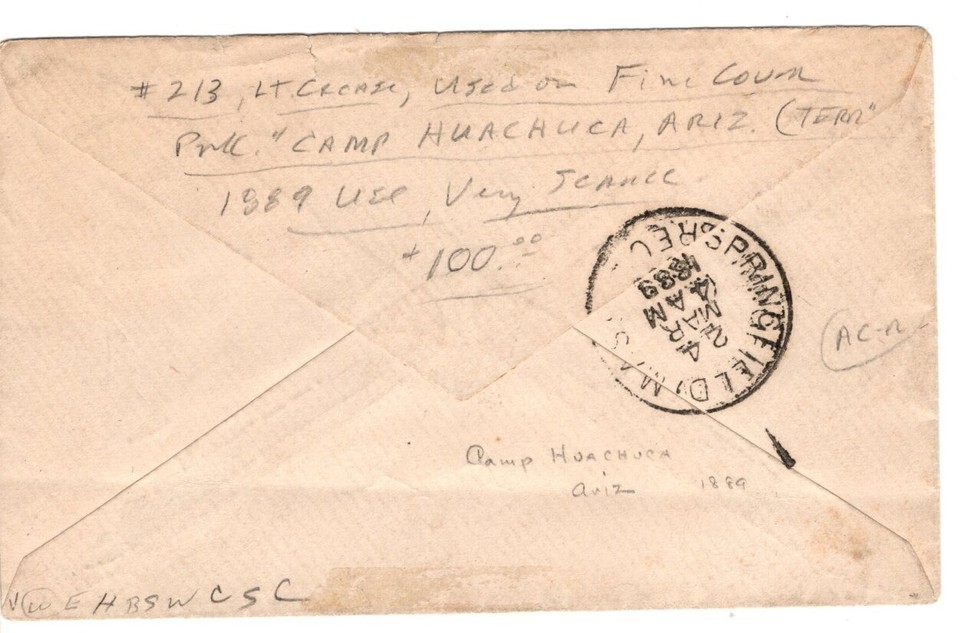 #213, LT CREASE, USED ON FINE COVER
PMK. "CAMP HUACHUCA, ARIZ. (TERR"
1889 USE, Very SCARCE
$100.00
SPRINGFIELD, MASS
REC'D
4 AM
MAR
2
1889
AC-R-
Camp HUACHUCA
Ariz 1889
W E H B S W C S C